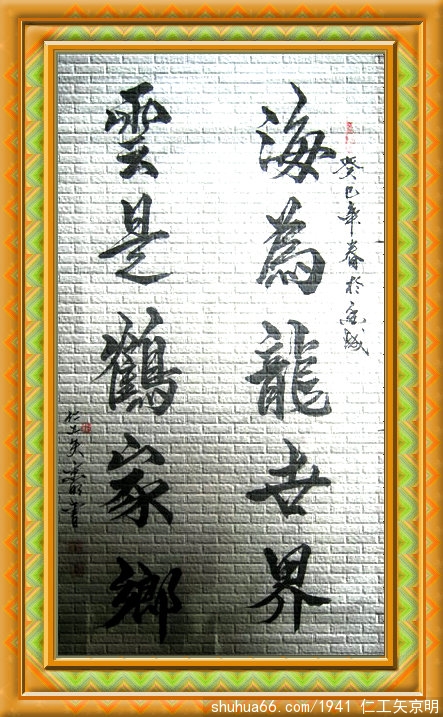 癸巳年春於城
海為龍世界
雲是鶴家鄉
仁工矢京明書
shuhua66.com/1941 仁工矢京明